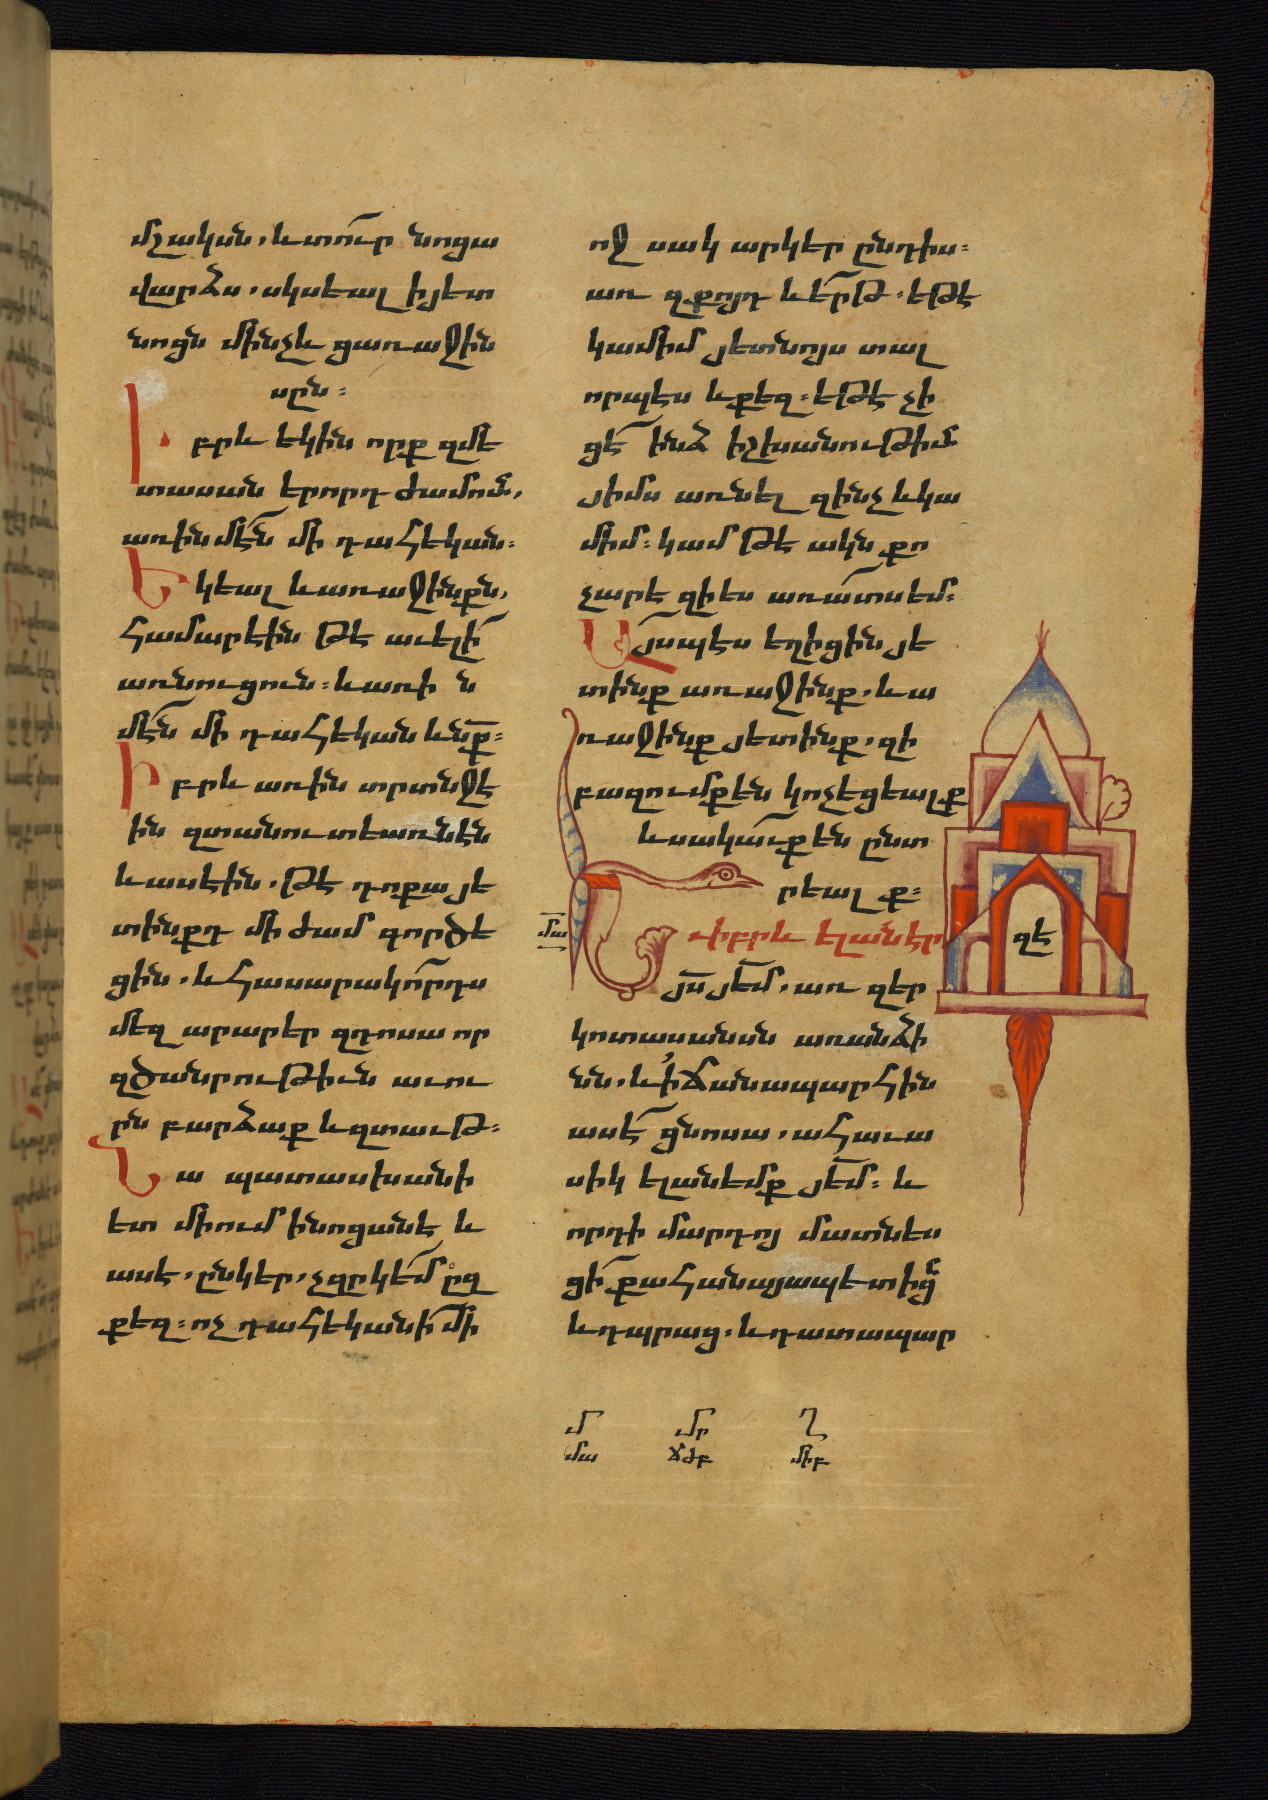 մշակսն, և տո՛ւր նոցա
վարձս. սկսեալ իյետ
նոցն մինչև ցառաջին
սըն։
Իբրև եկին որք զմե
տասան երորդ ժամո՛ւն,
առին մէն մի դահեկան։
Եկեալ և առաջինքն,
համարէին թէ աւելի՛
առնուցուն։ և առի ն
մէն մի դահեկան ևնք՝։
Իբրև առին տրտնջէ
ին զտանուտեառնէն
և ասէին. թէ դոքա յե
տինքդ մի ժամ գործե
ցին. և հասարակո՛րդս
մեզ արարեր զդոսա որ
զծանրութիւն աւու
րն բարձաք և զտաւթ։
Նա պատասխանի
ետ միում ի նոցանէ և
ասէ. ընկեր, չզրկե՛մ ըզ
քեզ։ ոչ դահեկանի՛ մի
ոջ սակ արկեր ընդիս։
առ զքոյդ և ե՛րթ. եթէ
կամիմ յետնոյս տալ
որպէս և քեզ։ եթէ չի
ցէ՛ ինձ իշխանութիւն
յիմս առնել զինչ և կա
միմ։ կամ թէ ակն քո
չարե զի ես առա՛տս եմ։
Այսպէս եղիցին յե
տինք առաջինք. և ա
ռաջինք յետինք. զի
բազումքեն կոչեցեալք
և սակա՛ւք են ընտ
րեալ ք։
մա
Եւ իբրև ելանէր
յս յեմ, առ զեր
զէ
կոտասանսն առանձի
նն. և ի ճանապարհին
ասէ՛ ցնոսա. ահաւա
սիկ ելանեմք յեմ։ և
որդի մարդոյ մատնես
ցի՛ քահանայապետից՛
և դպրաց. և դատապար
մ մր Ղ
մա ճժբ միբ